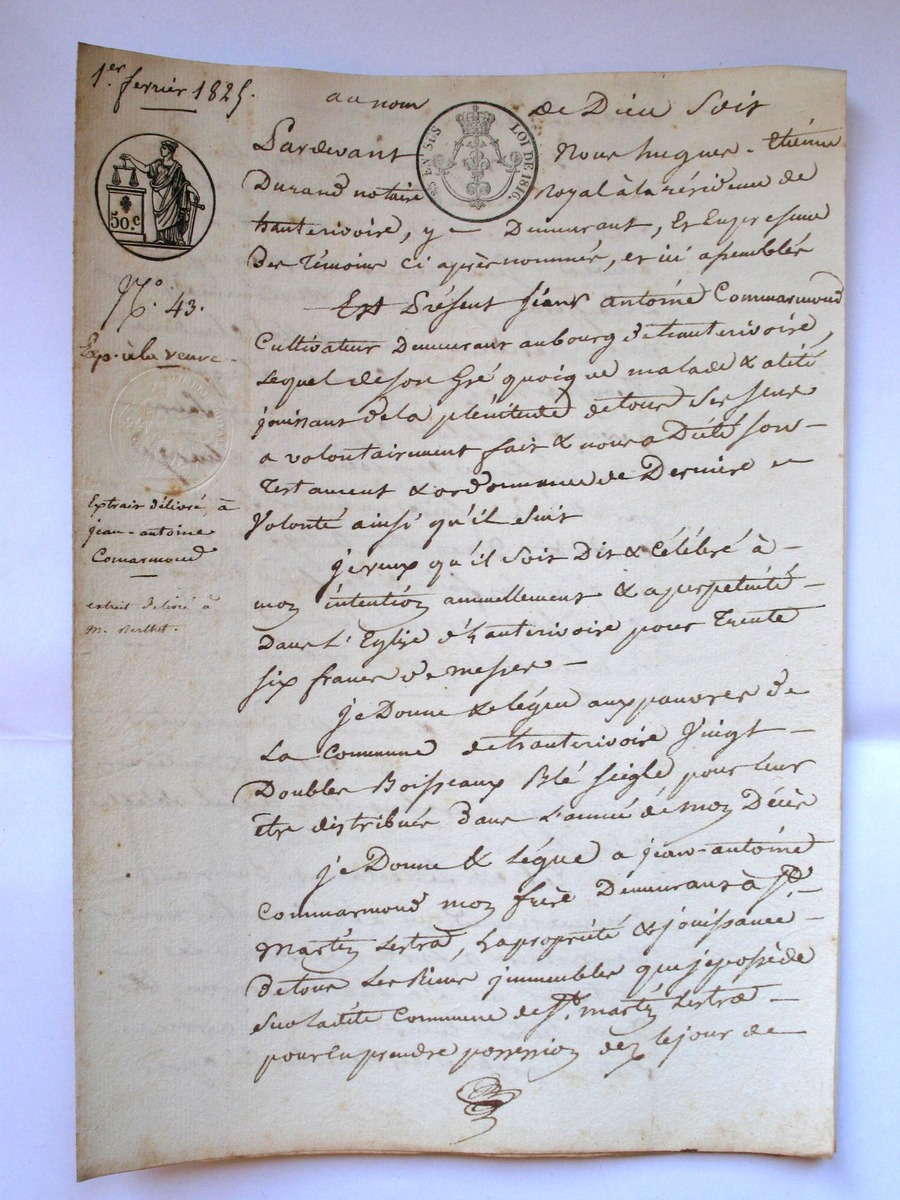 1er fevrier 1825.
au nom de Dieu Soit
Pardevant Nous hugues-Etienne
Durand notaire Royal à la résidence de
hauterivoire, y Demeurant, Et En presence
Des Témoins ci après nommés, et ici assemblés
Est Présent Jean antoine Commarmond
Cultivateur Demeurant au bourg d'hauterivoire,
Lequel de son Gré quoique malade & alité
jouissant de la plénitude de tous ses sens
a volontairement fait & nous a Dicté son
Testament & ordonnance de Dernière
Volonté ainsi qu'il suit
je veux qu'il soit Dit & Célébré à
mon intention annuellement & a perpetuité
Dans L'Eglise d'hauterivoire pour Trente
six francs de messes
je Donne & légue aux pauvres de
La commune d'hauterivoire Vingt
Doubles Boisseaux Blé seigle pour leur
être distribués Dans L'année de mon Décès
je Donne & Légue a jean-antoine
Commarmond mon frère Demeurant à St
Martin Lestra, La propriété & jouissance
de tous Les Biens jmmeubles que je possède
sur ladite Commune de St martin Lestra
pour En prendre possession dez le jour de
50.c
85 EN SUS
LOI DE 1816.
No. 43.
Exp. à la veuve
Extrait délivré à
jean-antoine
Comarmond
extrait délivré à
M. Berthet.